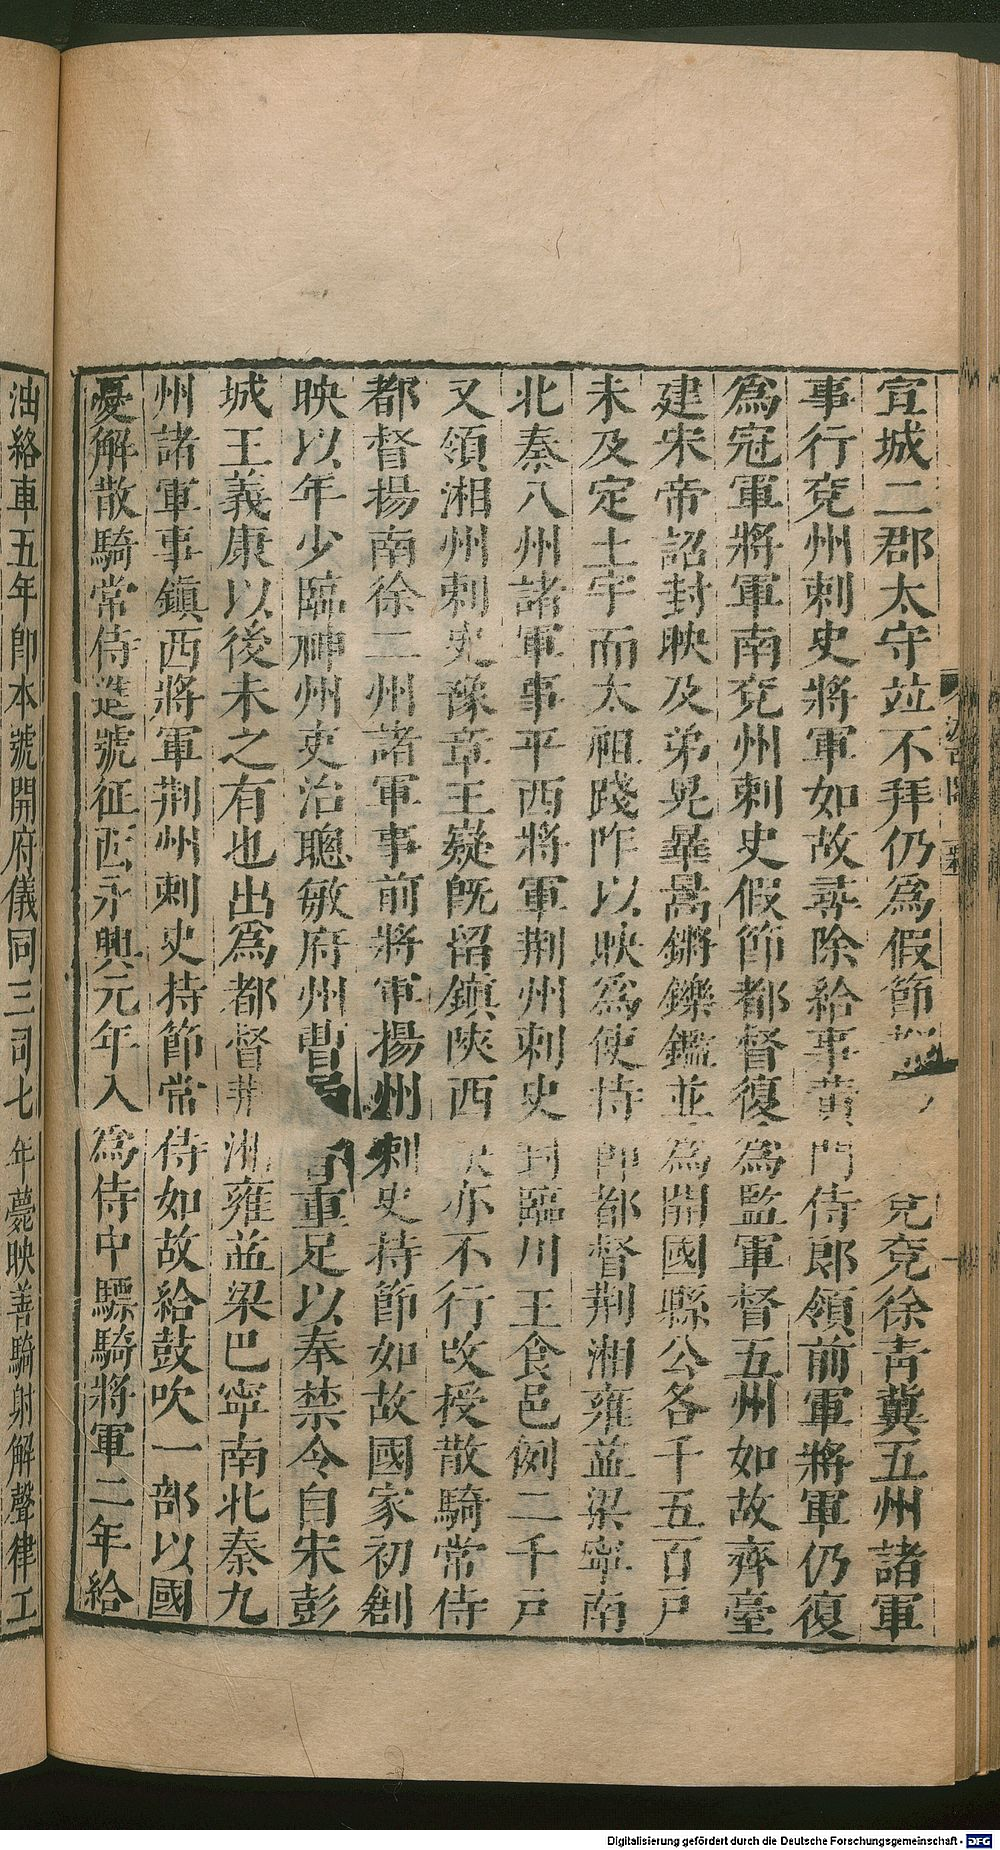 宜城二郡太守竝不拜仍爲假節 兗徐靑冀五州諸軍
事行兗州刺史將軍如故尋除給事黃門侍郎領前軍將軍仍復
爲冠軍將軍南兗州刺史假節都督復爲監軍督五州如故齊臺
建宋帝詔封映及弟晃曅暠鏘鑠鑑並爲開國縣公各千五百戶
未及定土宇而太祖踐阼以映爲使持節都督荆湘雍益梁寧南
北秦八州諸軍事平西將軍荆州刺史封臨川王食邑例二千戶
又領湘州刺史豫章王嶷旣留鎭陝西映亦不行改授散騎常侍
都督揚南徐二州諸軍事前將軍揚州刺史持節如故國家初創
映以年少臨神州吏治聰敏府州曹 重足以奉禁令自宋彭
城王義康以後未之有也出爲都督荆湘雍益梁巴寧南北秦九
州諸軍事鎭西將軍荆州刺史持節常侍如故給鼓吹一部以國
憂解散騎常侍進號征西永興元年入爲侍中驃騎將軍二年給
油絡車五年卽本號開府儀同三司七年薨映善騎射解聲律工
Digitalisierung gefördert durch die Deutsche Forschungsgemeinschaft - DFG